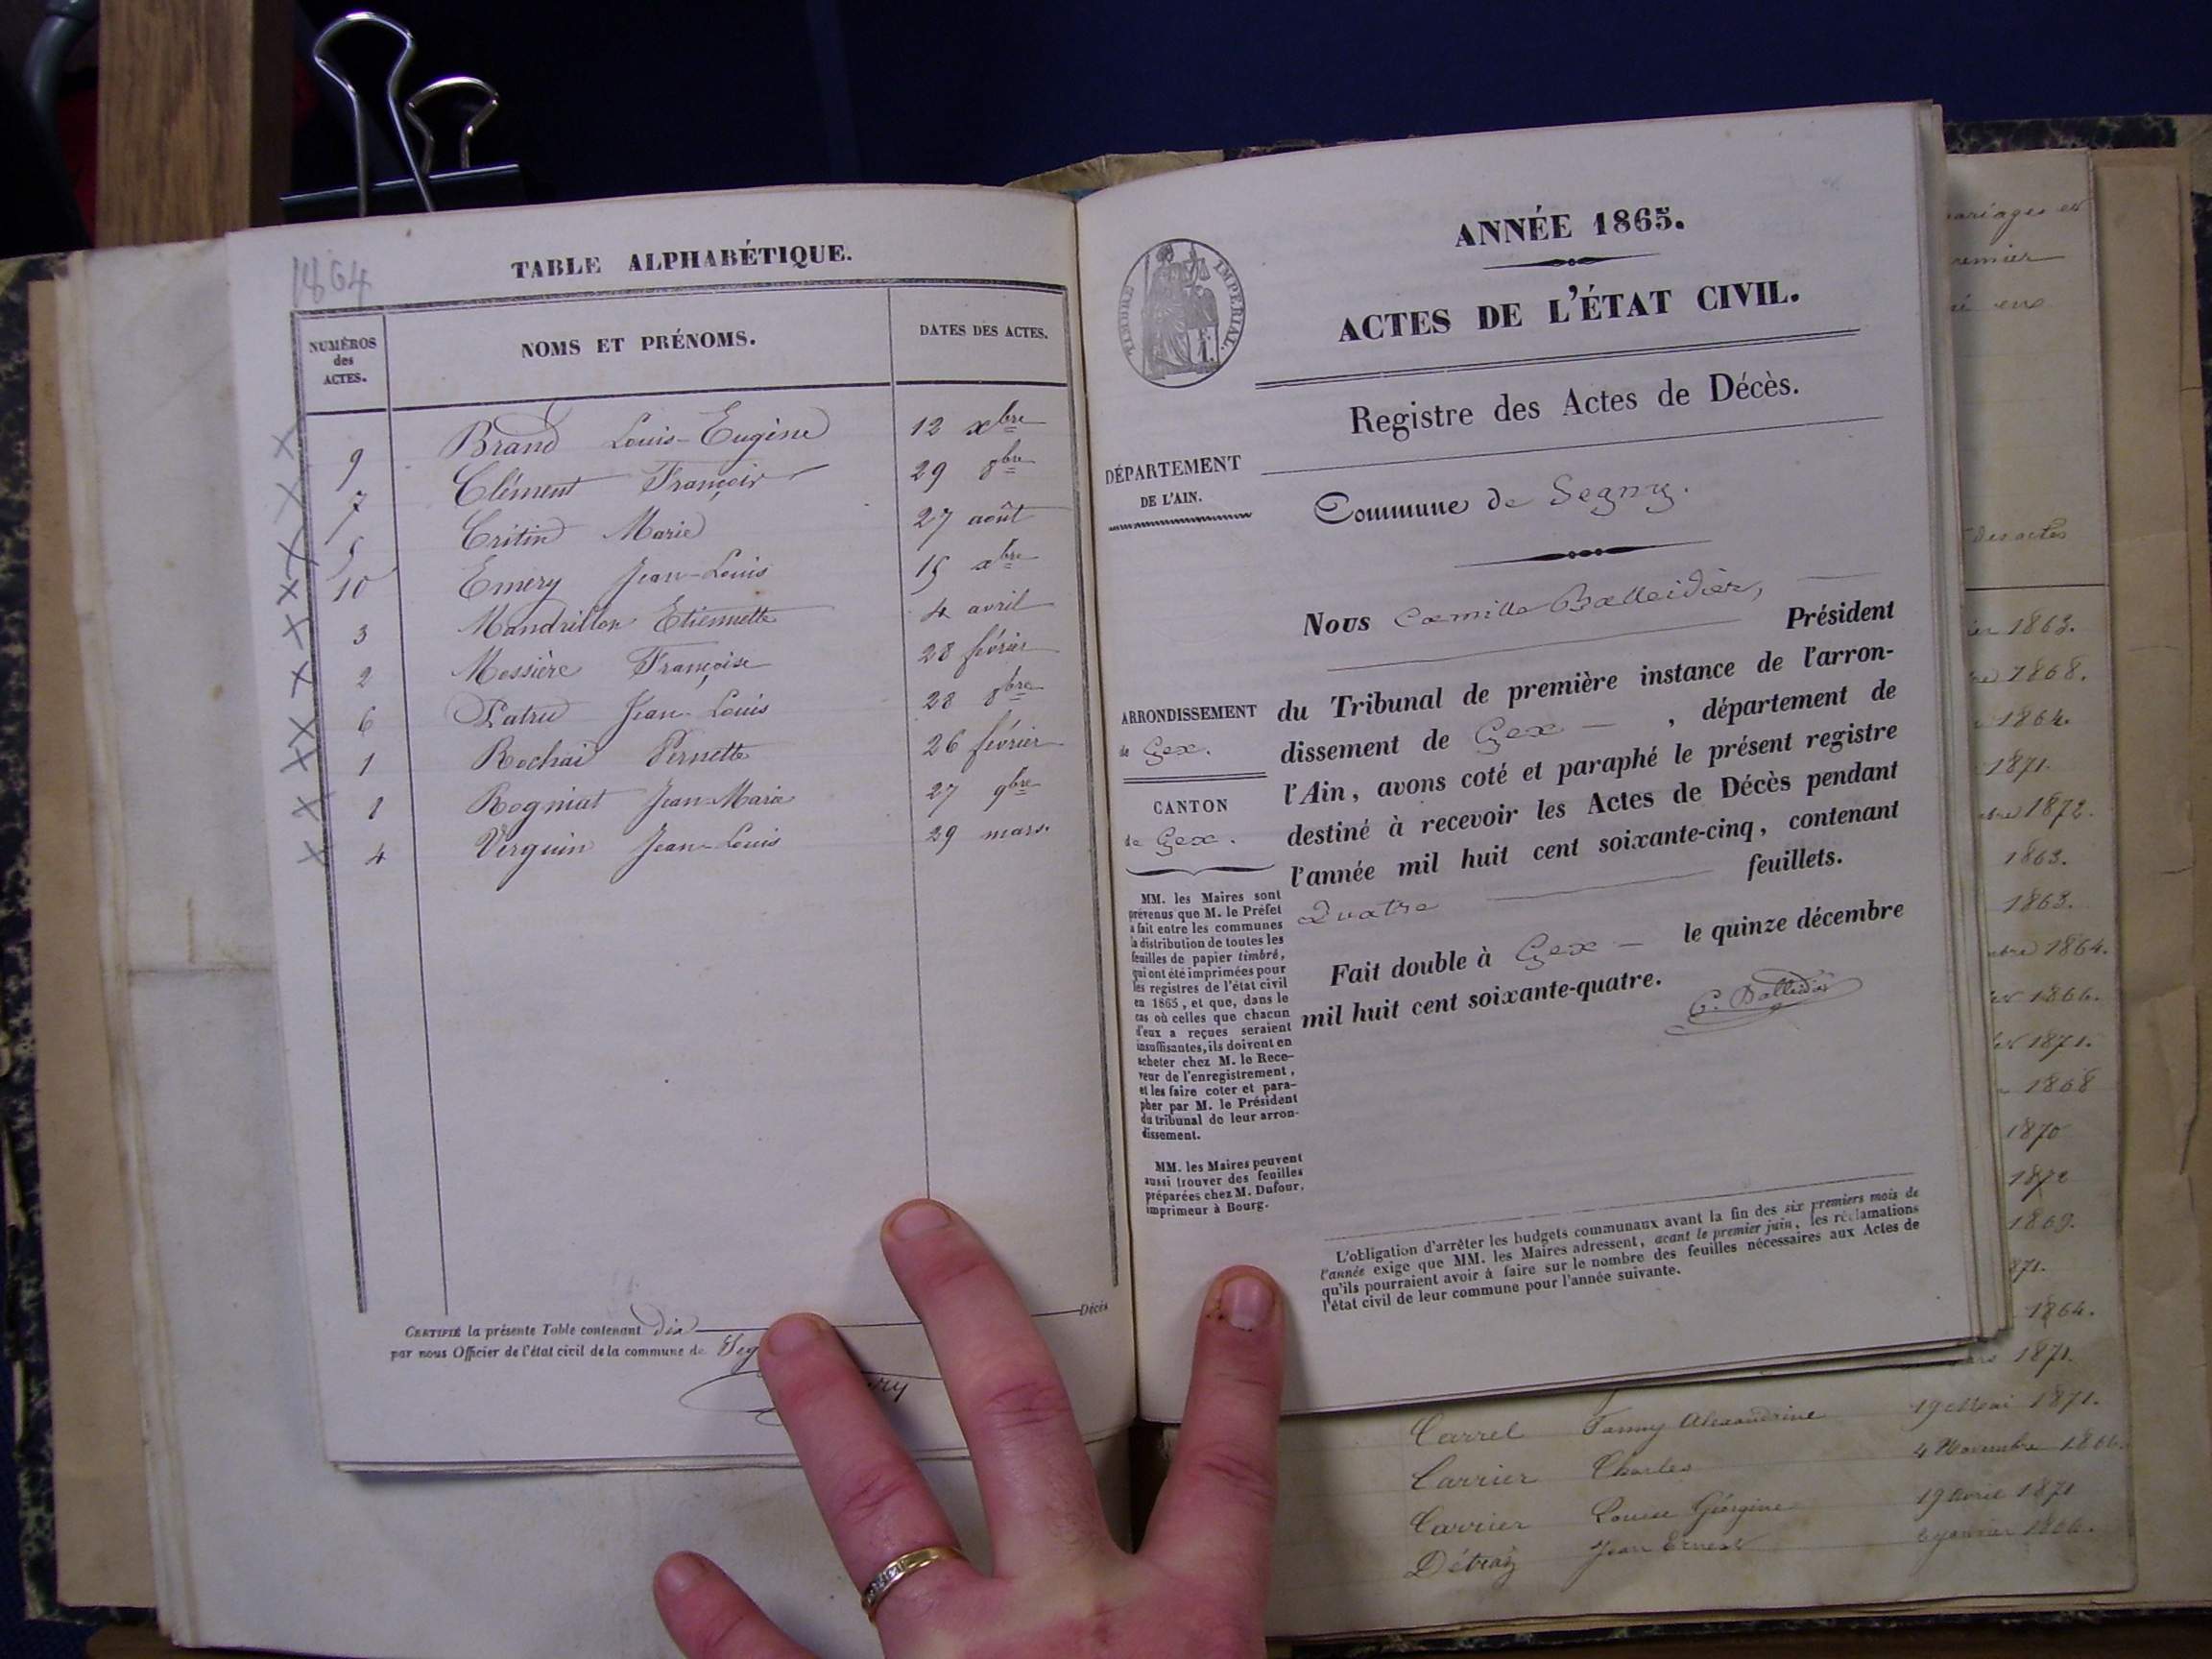 1864
TABLE ALPHABÉTIQUE.
NUMÉROS des ACTES. NOMS ET PRÉNOMS. DATES DES ACTES.
9 Brand Louis-Eugène 12 xbre
7 Clément François 29 8bre
5 Critin Marie 27 août
10 Emery Jean-Louis 15 xbre
3 Mandrillon Etiennette 4 avril
2 Mossière Françoise 28 février
6 Patru Jean-Louis 28 8bre
1 Rochaid Pernette 26 février
8 Rogniat Jean-Marie 27 9bre
4 Verguin Jean-Louis 29 mars.
CERTIFIÉ la présente Table contenant dix Décès
par nous Officier de l'état civil de la commune de Seg
ANNÉE 1865.
ACTES DE L'ÉTAT CIVIL.
TIMBRE IMPÉRIAL.
Registre des Actes de Décès.
DÉPARTEMENT
DE L'AIN.
Commune de Segny.
Nous Camille Balleidier,
Président
du Tribunal de première instance de l'arron-
dissement de Gex , département de
l'Ain, avons coté et paraphé le présent registre
destiné à recevoir les Actes de Décès pendant
l'année mil huit cent soixante-cinq, contenant
Quatre feuillets.
Fait double à Gex le quinze décembre
mil huit cent soixante-quatre.
C. Balleidier
ARRONDISSEMENT
de Gex.
CANTON
de Gex.
MM. les Maires sont
prévenus que M. le Préfet
a fait entre les communes
la distribution de toutes les
feuilles de papier timbré,
qui ont été imprimées pour
les registres de l'état civil
en 1865, et que, dans le
cas où celles que chacun
d'eux a reçues seraient
insuffisantes, ils doivent en
acheter chez M. le Rece-
veur de l'enregistrement,
et les faire coter et para-
pher par M. le Président
du tribunal de leur arron-
dissement.
MM. les Maires peuvent
aussi trouver des feuilles
préparées chez M. Dufour,
imprimeur à Bourg.
L'obligation d'arrêter les budgets communaux avant la fin des six premiers mois de
l'année exige que MM. les Maires adressent, avant le premier juin, les réclamations
qu'ils pourraient avoir à faire sur le nombre des feuilles nécessaires aux Actes de
l'état civil de leur commune pour l'année suivante.
mariages et
premier
des actes
1863.
1868.
1864.
1871.
1872.
1863.
1863.
1864.
1866.
1871.
1868
1870
1872
1869.
871.
1864.
1871.
Carrel Fanny Alexandrine 19 Mai 1871.
Carrier Charles 4 Novembre 1866.
Carrier Louise Géorgine 19 Avril 1871
Détraz Jean Ernest 6 janvier 1866.